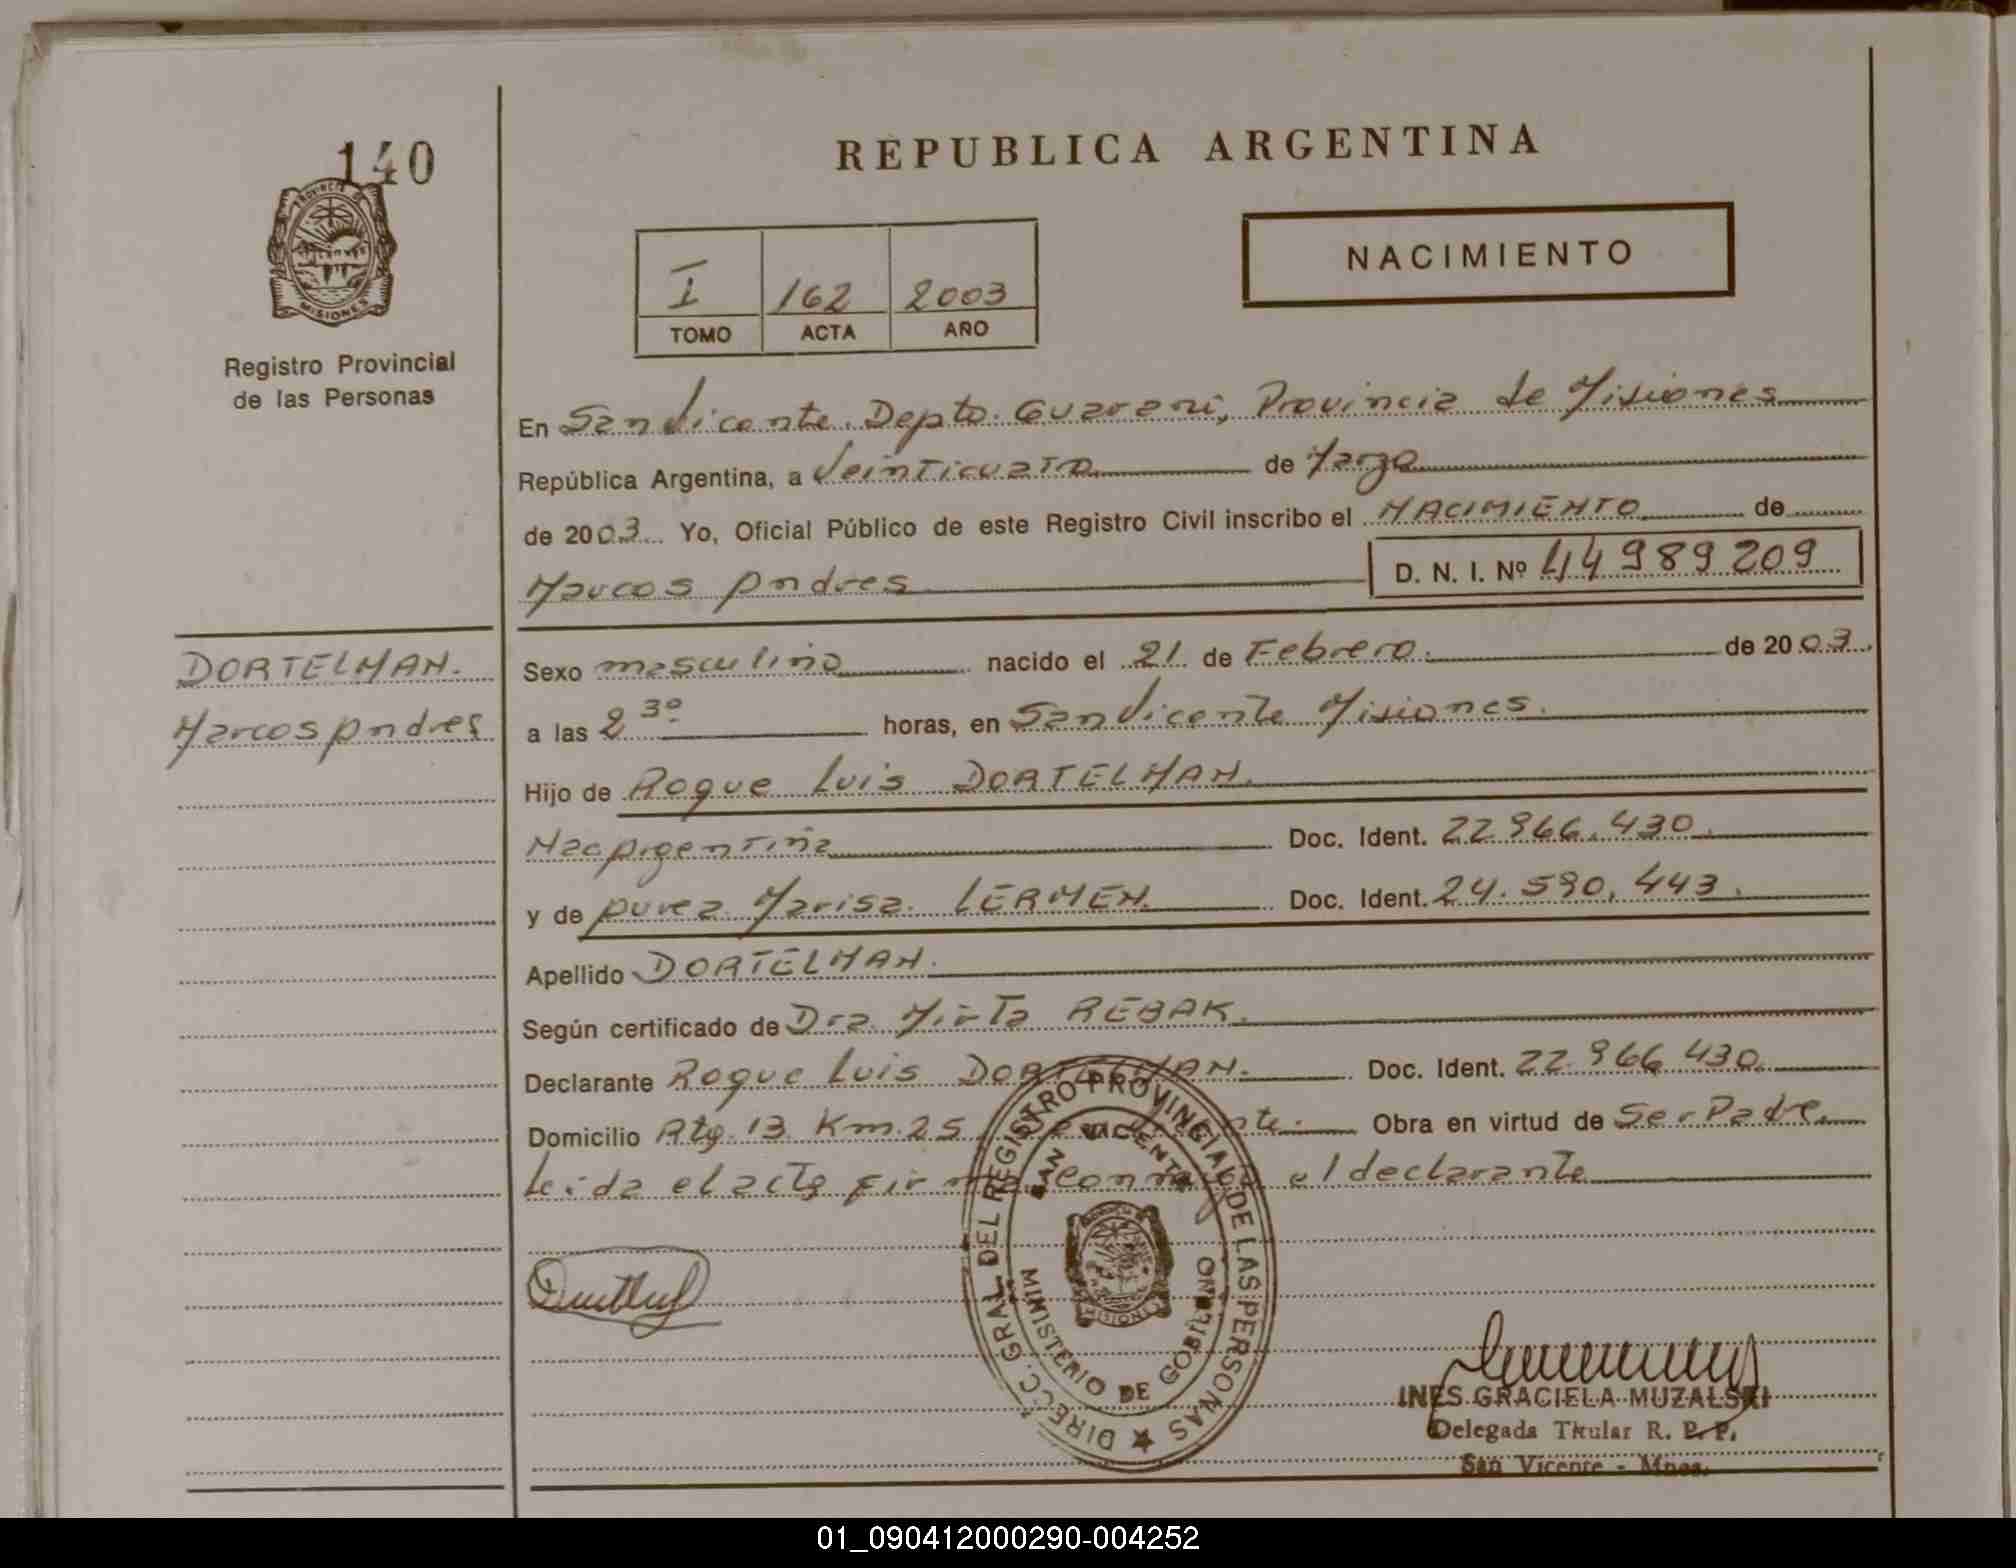 140
REPUBLICA ARGENTINA
PROVINCIA DE
MISIONES
Registro Provincial
de las Personas
I 162 2003
TOMO ACTA AÑO
NACIMIENTO
En San Vicente. Depto. Guarani, Provincia de Misiones
República Argentina, a Veinticuatro de Marzo
de 2003 Yo, Oficial Público de este Registro Civil inscribo el NACIMIENTO de
Marcos Andres D. N. I. Nº 44989209
DORTELMAN.
Marcos Andres
Sexo masculino nacido el 21 de Febrero. de 2003
a las 2 30 horas, en San Vicente Misiones.
Hijo de Roque Luis DORTELMAN.
Nac Argentina Doc. Ident. 22.966.430.
y de Aurea Marisa LERMEN. Doc. Ident. 24.590.443.
Apellido DORTELMAN.
Según certificado de Dra Mirta REBAK.
Declarante Roque Luis DORTELMAN. Doc. Ident. 22.966.430.
Domicilio Rta. 13 Km. 25 San Vicente. Obra en virtud de Ser Padre.
Leida el acta firma conmigo el declarante
DIRECC. GRAL DEL REGISTRO PROVINCIAL DE LAS PERSONAS
SAN VICENTE
MINISTERIO DE GOBIERNO
INES GRACIELA MUZALSKI
Delegada Titular R. P. P.
San Vicente - Mnes.
01_090412000290-004252